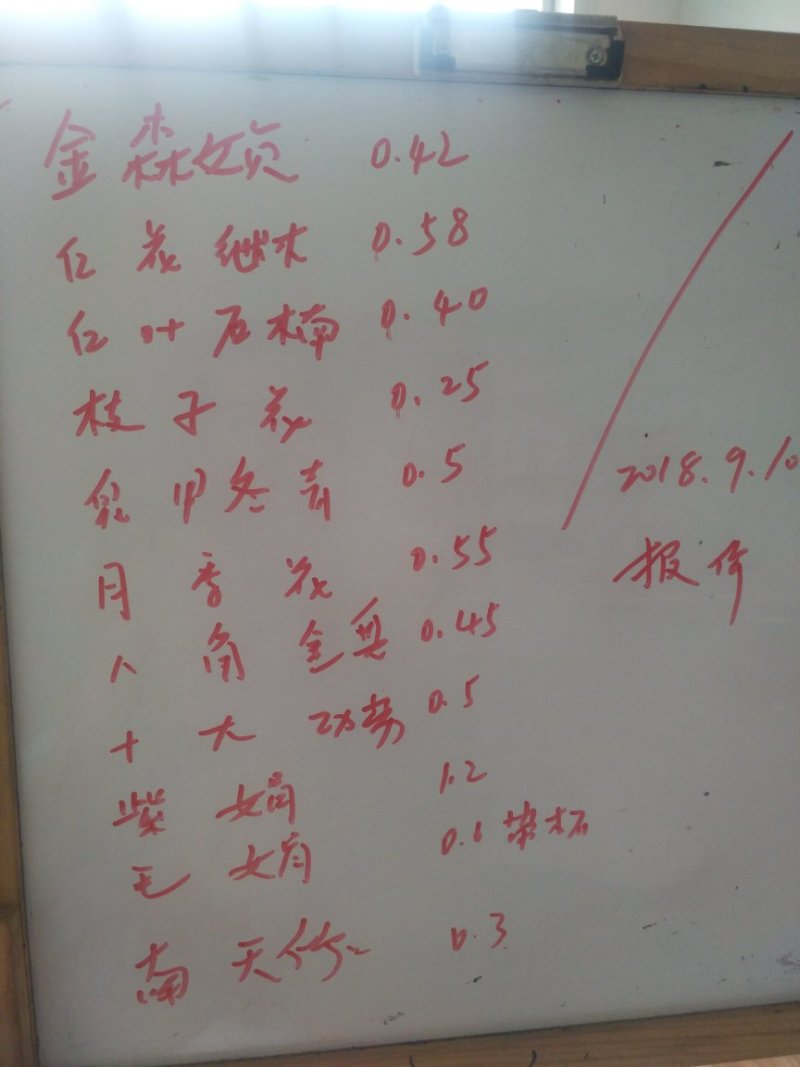 金森女贞 0.42
红花继木 0.58
红叶石楠 0.40
枝子花 0.25
龟甲冬青 0.5
月季花 0.55
八角金盘 0.45
十大功劳 0.5
紫娟 1.2
毛娟 0.6 带杯
南天竹 0.3
2018.9.10
报价